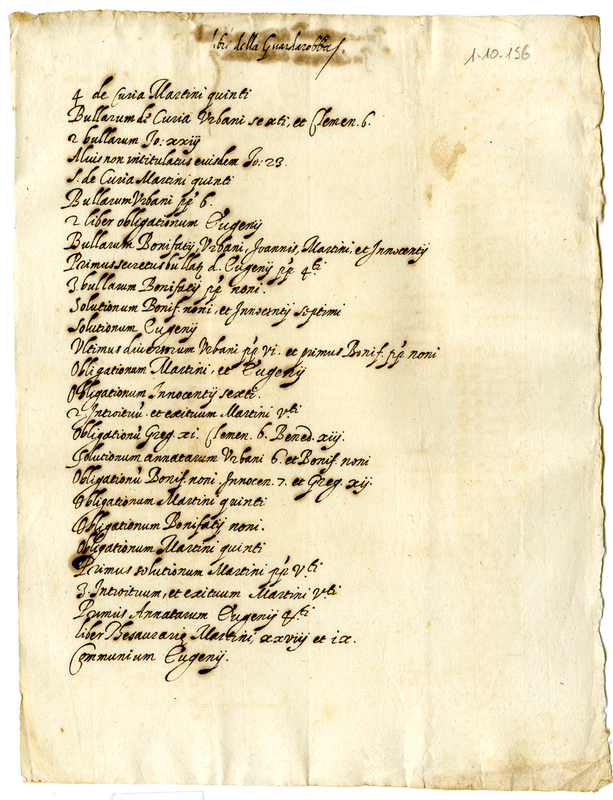 libri della Guardarobba
1-10-156
4 de Curia Martini quinti
Bullarum de Curia Vrbani sexti, et Clemen. 6.
2 bullarum Jo: xxiij
Alius non intitulatus eiusdem Jo: 23.
s. de Curia Martini quinti
Bullarum Vrbani pp 6.
2 liber obligationum Eugenij
Bullarum Bonifatij, Vrbani, Joannis, Martini, et Innocentij
Primus secretus bullar d. Eugenij pp 4ti
3 bullarum Bonifatij pp noni.
Solutionum Bonif. noni, et Innocentij septimi
Solutionum Eugenij
Vltimus diuersorum Vrbani pp vi. et primus Bonif. pp noni
Obligationum Martini. et Eugenij
Obligationum Innocentij sexti.
2 Introituū. et exituum Martini vti
Obligationū Greg. xi. Clemen. 6. Bened. xiij.
Solutionum annatarum Vrbani 6. et Bonif. noni
Obligationū Bonif. noni. Innocen. 7. et Greg. xij.
Obligationum Martini quinti
Obligationum Bonifatij noni.
Obligationum Martini quinti
Primus solutionum Martini pp Vti
3. Introituum, et exituum Martini Vti
Primus Annatarum Eugenij 4ti
liber Thesaurarię Martini, xxviij et ix.
Communium Eugenij.